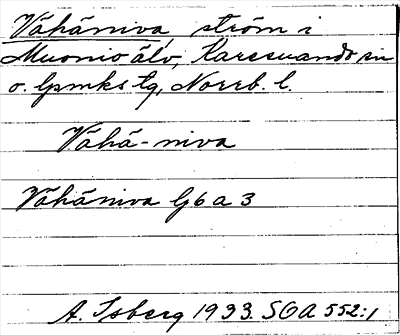 Vähäniva, ström i
Muonio älv, Karesuando sn
o. lpmks tg, Norrb. l.
Vähä-niva
Vähäniva G6a3
A. Isberg 1933. SOA 552:1